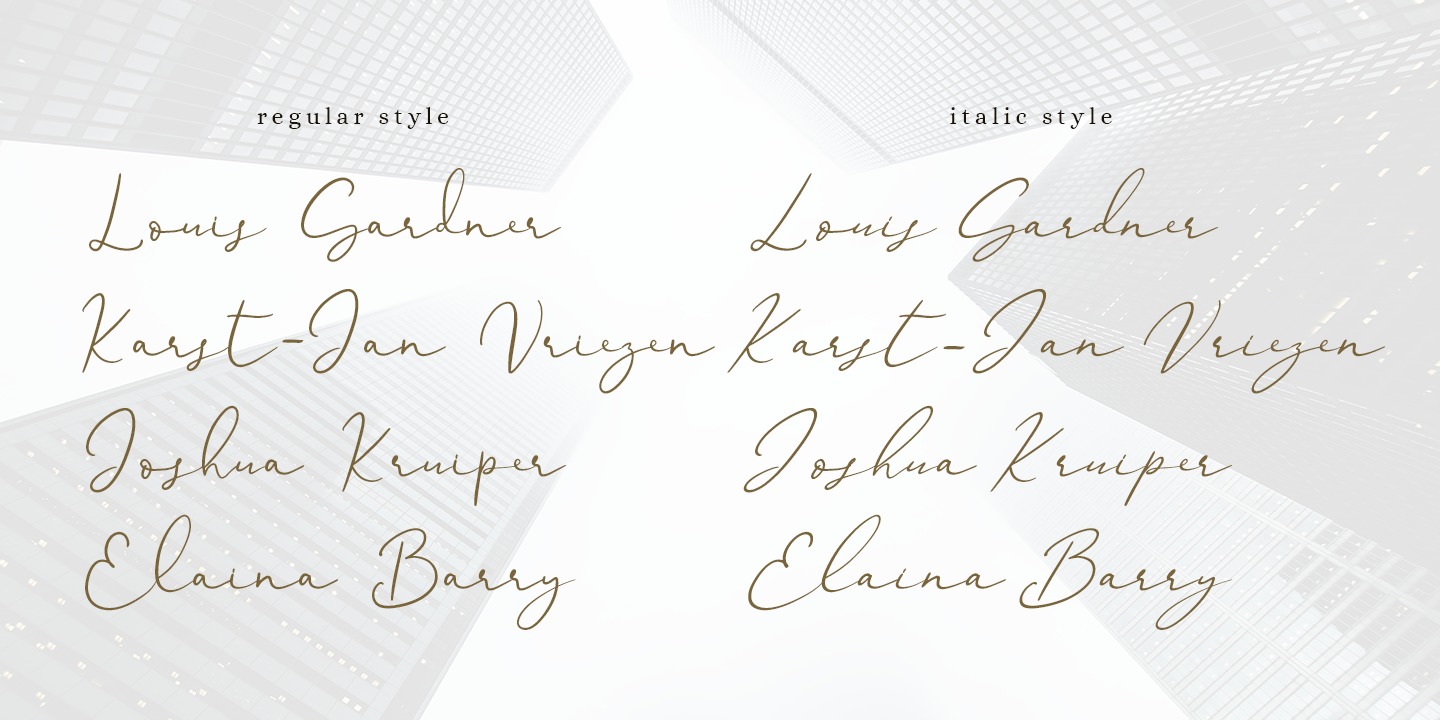 regular style
Louis Gardner
Karst-Jan Vriezen
Joshua Kruiper
Elaina Barry
italic style
Louis Gardner
Karst-Jan Vriezen
Joshua Kruiper
Elaina Barry